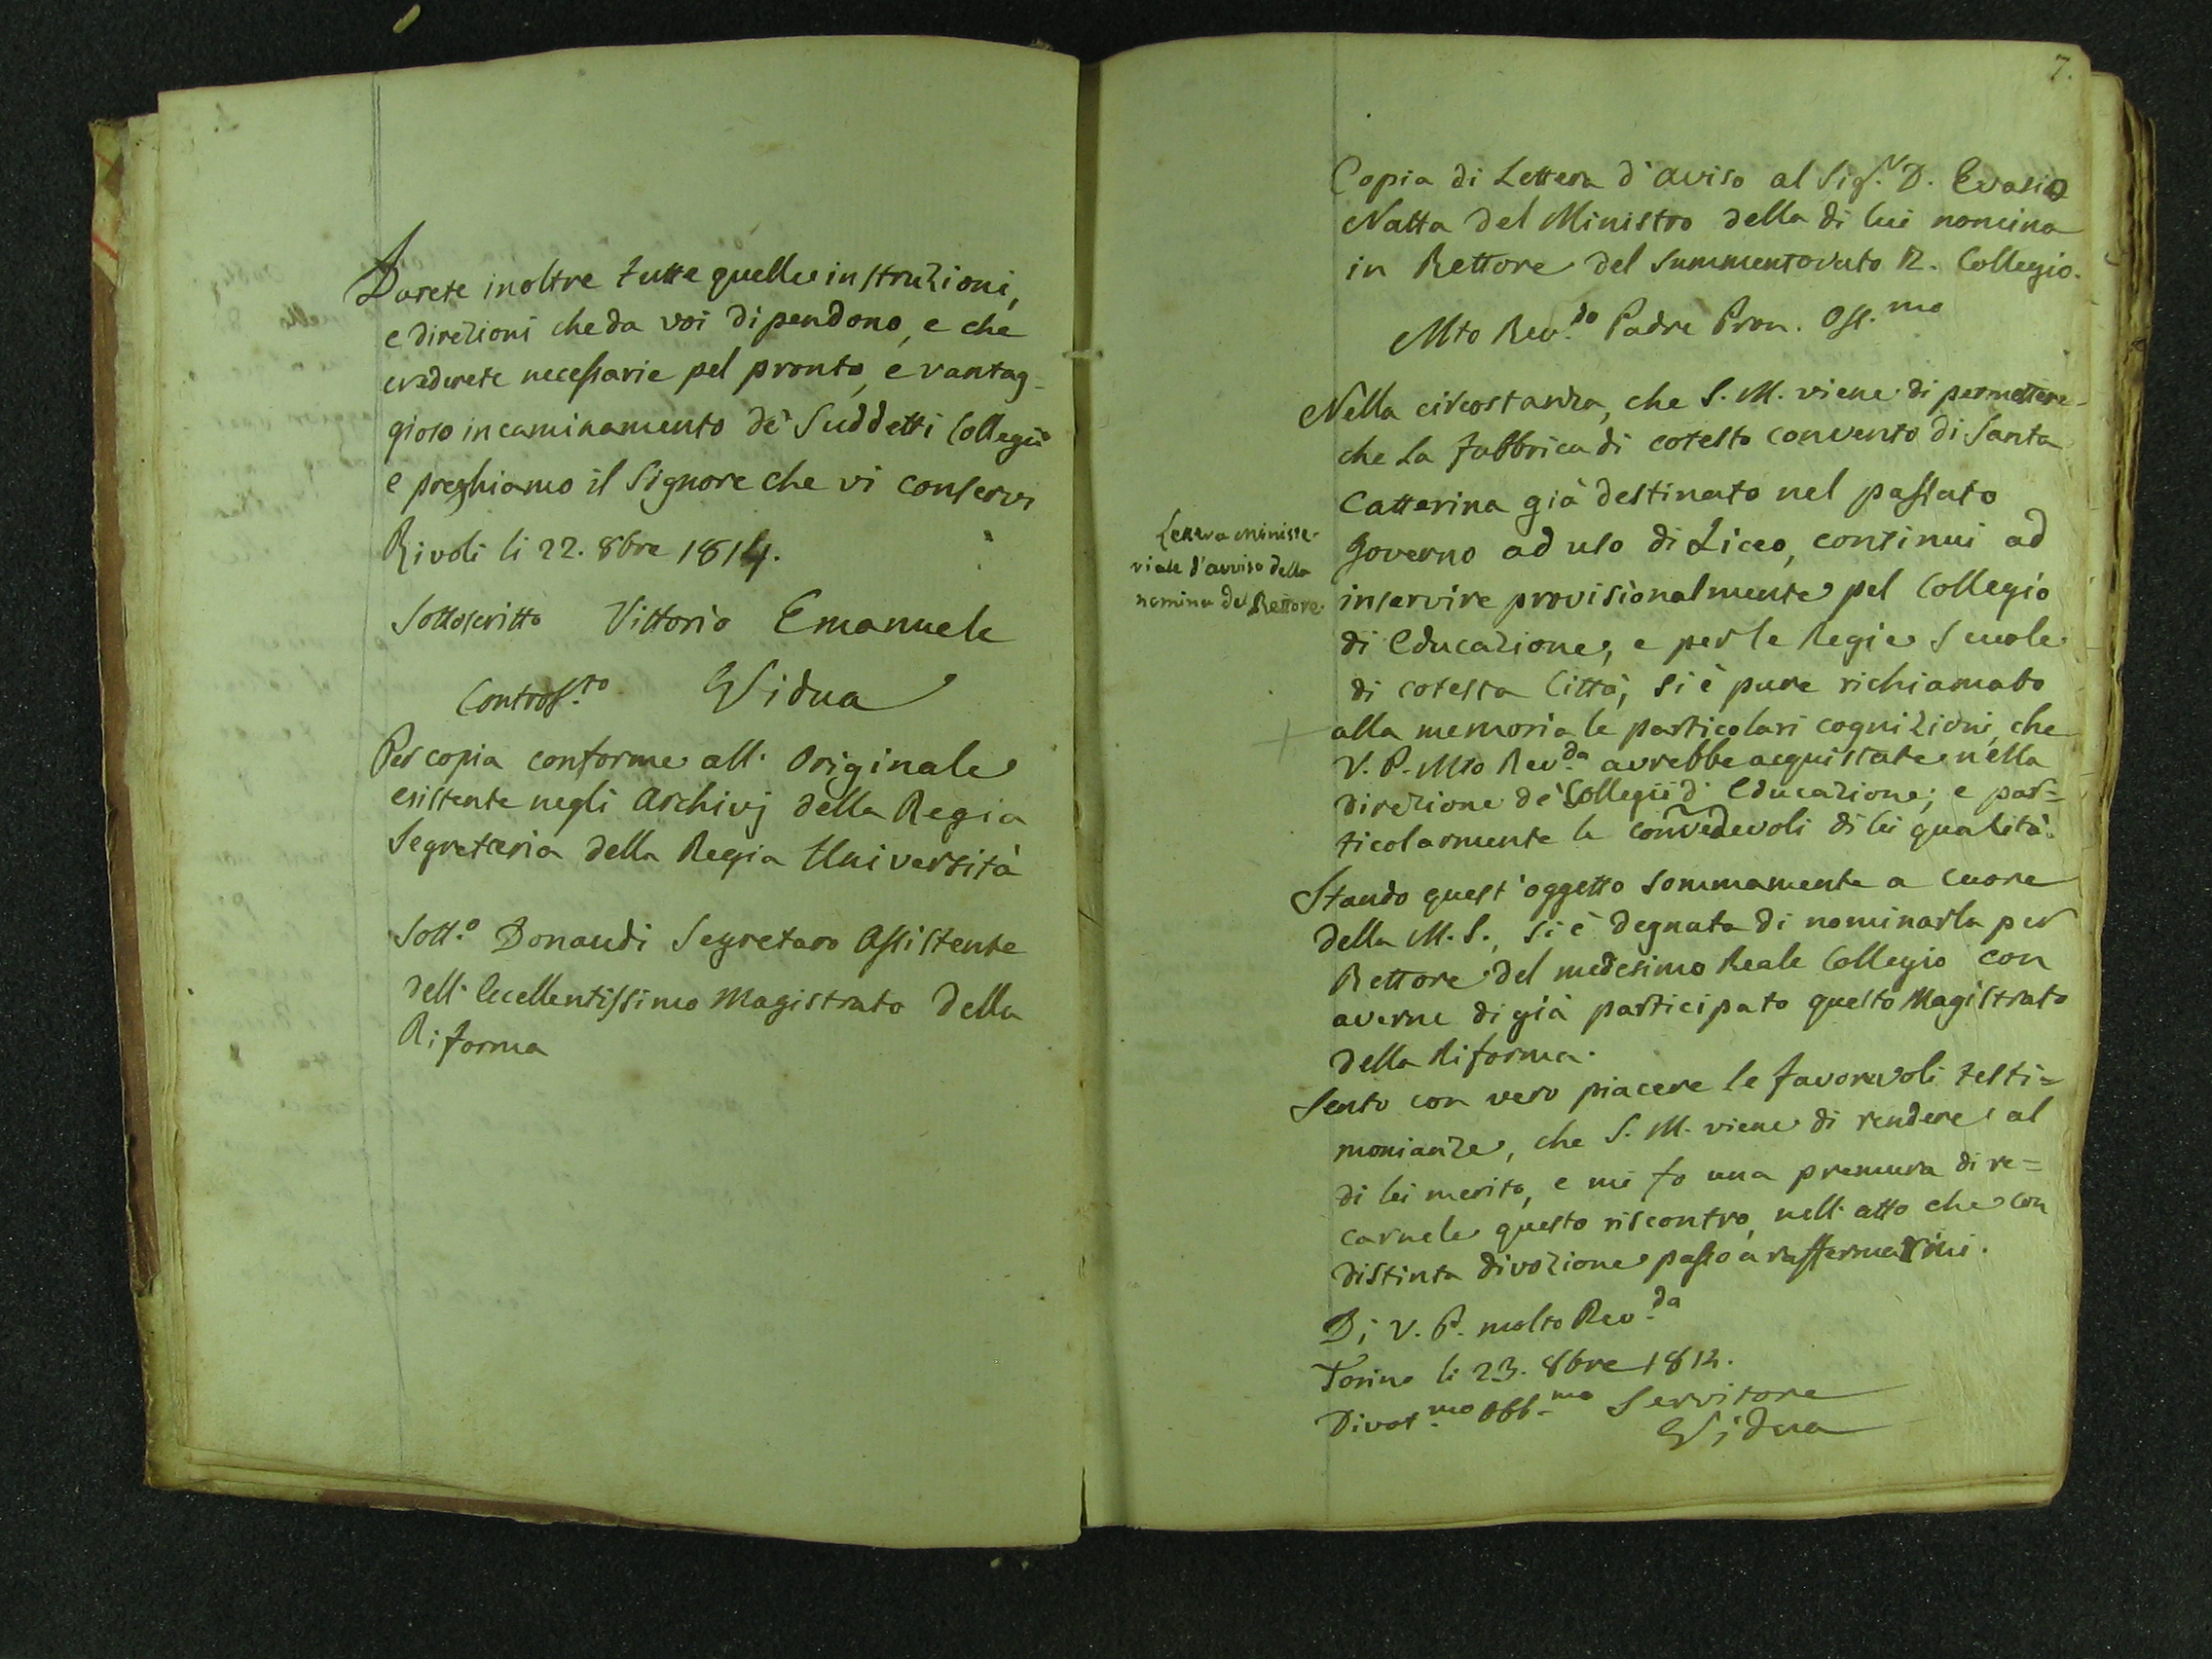 Darete inoltre tutte quelle instruzioni,
e direzioni che da voi dipendono, e che
crederete necessarie pel pronto, e vantag-
gioso incaminamento de' Suddetti Collegii
e preghiamo il Signore che vi conservi
Rivoli li 22. 8bre 1814.
Sottoscritto Vittorio Emanuele
Contros.to Vidua
Per copia conforme all' Originale
esistente negli Archivj della Regia
Segreteria della Regia Università
Sott.o Donaudi Segretaro Assistente
dell' Eccellentissimo Magistrato della
Riforma
7.
Copia di Lettera d'aviso al Sig.r D. Evasio
Natta del Ministro della di lui nomina
in Rettore del summentovato R. Collegio.
Mto Rev.do Padre Pron. Oss.mo
Nella circostanza, che S. M. viene di permettere
che La fabbrica di cotesto convento di Santa
Catterina già destinato nel passato
Governo ad uso di Liceo, continui ad
Lettera ministe-
riale d'avviso della
nomina del Rettore.
inservire provisionalmente pel Collegio
di Educazione, e per le Regie Scuole
di cotesta Città, si è pure richiamato
alla memoria le particolari cognizioni, che
V. P. Mto Rev.da avrebbe acquistate nella
direzione de' Collegii d' Educazione; e par=
ticolarmente le comendevoli di lei qualità.
Stando quest'oggetto sommamente a cuore
della M. S., si è degnata di nominarla per
Rettore del medesimo Reale Collegio con
averne di già participato questo Magistrato
della Riforma.
Sento con vero piacere le favorevoli testi=
monianze, che S. M. viene di rendere al
di lei merito, e mi fo una premura di re=
carnele questo riscontro, nell' atto che con
distinta divozione passo a raffermarmi.
Di V. P. molto Rev.da
Torino li 23. 8bre 1814.
Divot.mo Obb.mo Servitore
Vidua